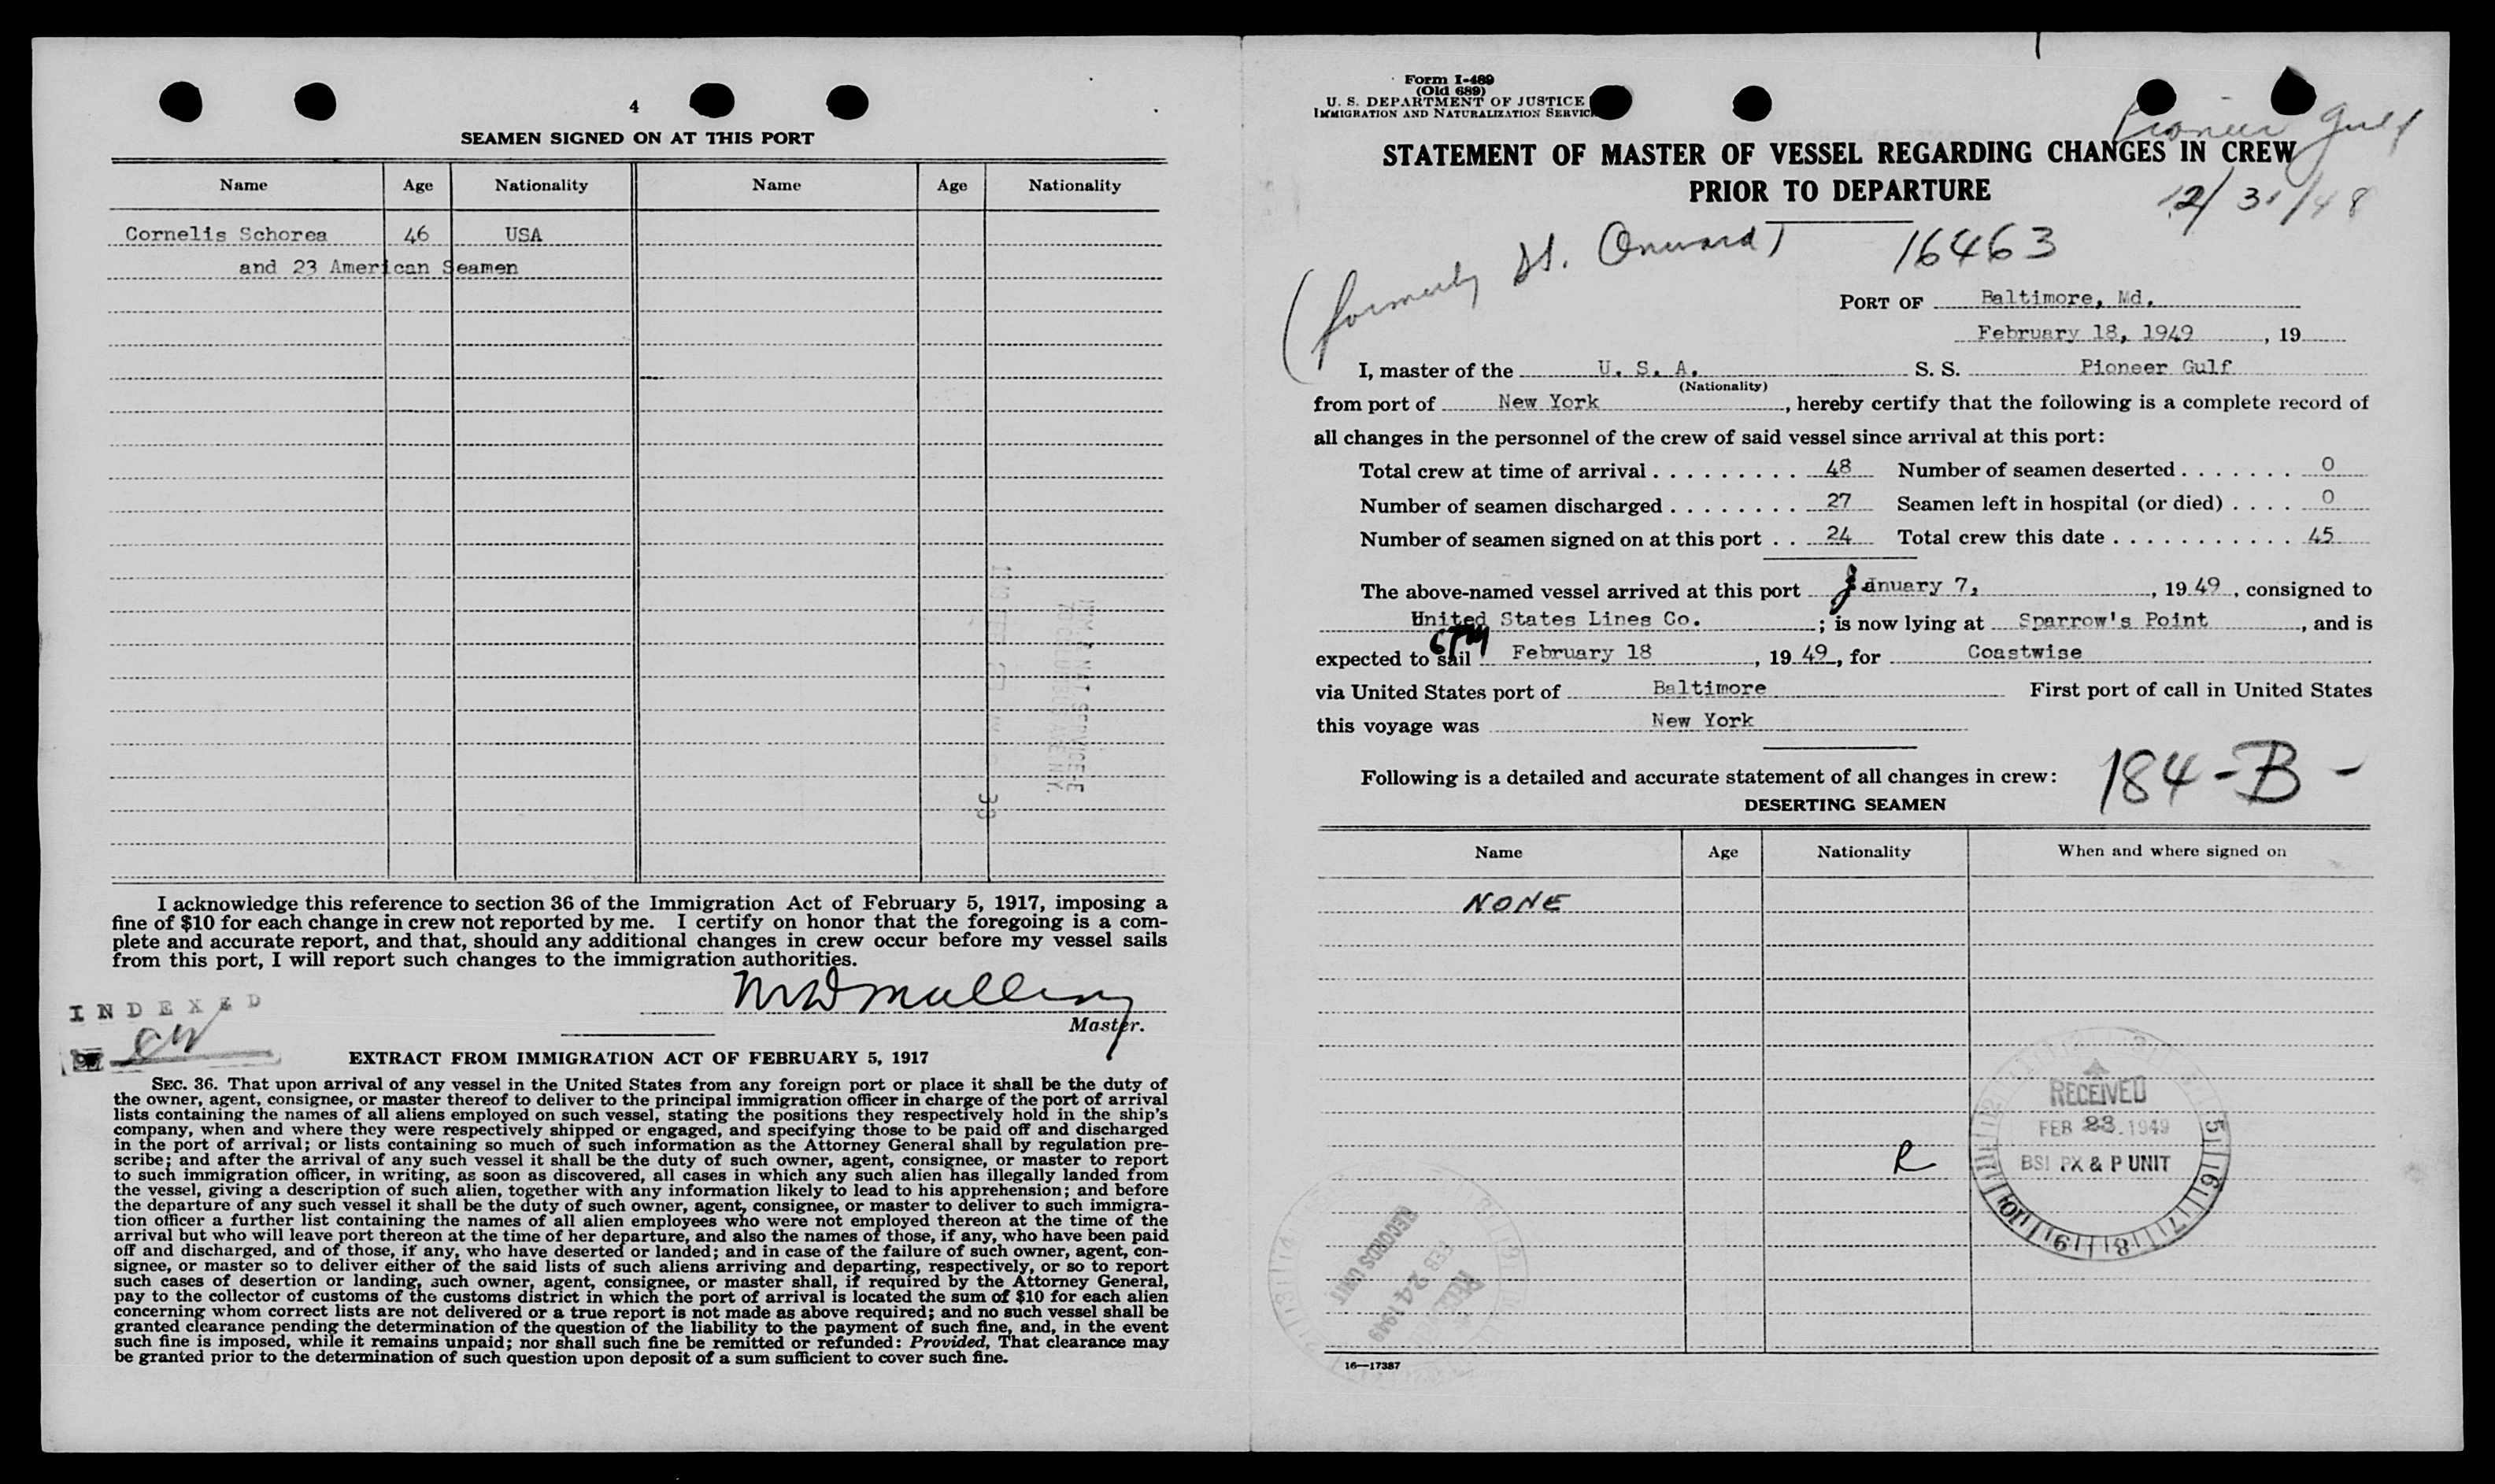 4
SEAMEN SIGNED ON AT THIS PORT
Name Age Nationality Name Age Nationality
Cornelis Schorea 46 USA
and 23 American Seamen
I acknowledge this reference to section 36 of the Immigration Act of February 5, 1917, imposing a
fine of $10 for each change in crew not reported by me. I certify on honor that the foregoing is a com-
plete and accurate report, and that, should any additional changes in crew occur before my vessel sails
from this port, I will report such changes to the immigration authorities.
Master.
INDEXED
EXTRACT FROM IMMIGRATION ACT OF FEBRUARY 5, 1917
SEC. 36. That upon arrival of any vessel in the United States from any foreign port or place it shall be the duty of
the owner, agent, consignee, or master thereof to deliver to the principal immigration officer in charge of the port of arrival
lists containing the names of all aliens employed on such vessel, stating the positions they respectively hold in the ship's
company, when and where they were respectively shipped or engaged, and specifying those to be paid off and discharged
in the port of arrival; or lists containing so much of such information as the Attorney General shall by regulation pre-
scribe; and after the arrival of any such vessel it shall be the duty of such owner, agent, consignee, or master to report
to such immigration officer, in writing, as soon as discovered, all cases in which any such alien has illegally landed from
the vessel, giving a description of such alien, together with any information likely to lead to his apprehension; and before
the departure of any such vessel it shall be the duty of such owner, agent, consignee, or master to deliver to such immigra-
tion officer a further list containing the names of all alien employees who were not employed thereon at the time of the
arrival but who will leave port thereon at the time of her departure, and also the names of those, if any, who have been paid
off and discharged, and of those, if any, who have deserted or landed; and in case of the failure of such owner, agent, con-
signee, or master so to deliver either of the said lists of such aliens arriving and departing, respectively, or so to report
such cases of desertion or landing, such owner, agent, consignee, or master shall, if required by the Attorney General,
pay to the collector of customs of the customs district in which the port of arrival is located the sum of $10 for each alien
concerning whom correct lists are not delivered or a true report is not made as above required; and no such vessel shall be
granted clearance pending the determination of the question of the liability to the payment of such fine, and, in the event
such fine is imposed, while it remains unpaid; nor shall such fine be remitted or refunded: Provided, That clearance may
be granted prior to the determination of such question upon deposit of a sum sufficient to cover such fine.
Form I-489
(Old 689)
U. S. DEPARTMENT OF JUSTICE
IMMIGRATION AND NATURALIZATION SERVICE
Pioneer Gulf
STATEMENT OF MASTER OF VESSEL REGARDING CHANGES IN CREW
PRIOR TO DEPARTURE
12/31/48
(formerly St. Onward)
16463
PORT OF Baltimore, Md.
February 18, 1949, 19
I, master of the U. S. A. S. S. Pioneer Gulf
(Nationality)
from port of New York, hereby certify that the following is a complete record of
all changes in the personnel of the crew of said vessel since arrival at this port:
Total crew at time of arrival 48 Number of seamen deserted 0
Number of seamen discharged 27 Seamen left in hospital (or died) 0
Number of seamen signed on at this port 24 Total crew this date 45
The above-named vessel arrived at this port January 7, 1949, consigned to
United States Lines Co.; is now lying at Sparrow's Point, and is
6PM
expected to sail February 18, 1949, for Coastwise
via United States port of Baltimore First port of call in United States
this voyage was New York
Following is a detailed and accurate statement of all changes in crew: 184-B-
DESERTING SEAMEN
Name Age Nationality When and where signed on
NONE
R
RECEIVED
FEB 23 1949
BSI PX & P UNIT
RECORDS UNIT
FEB 24 1949
16—17387